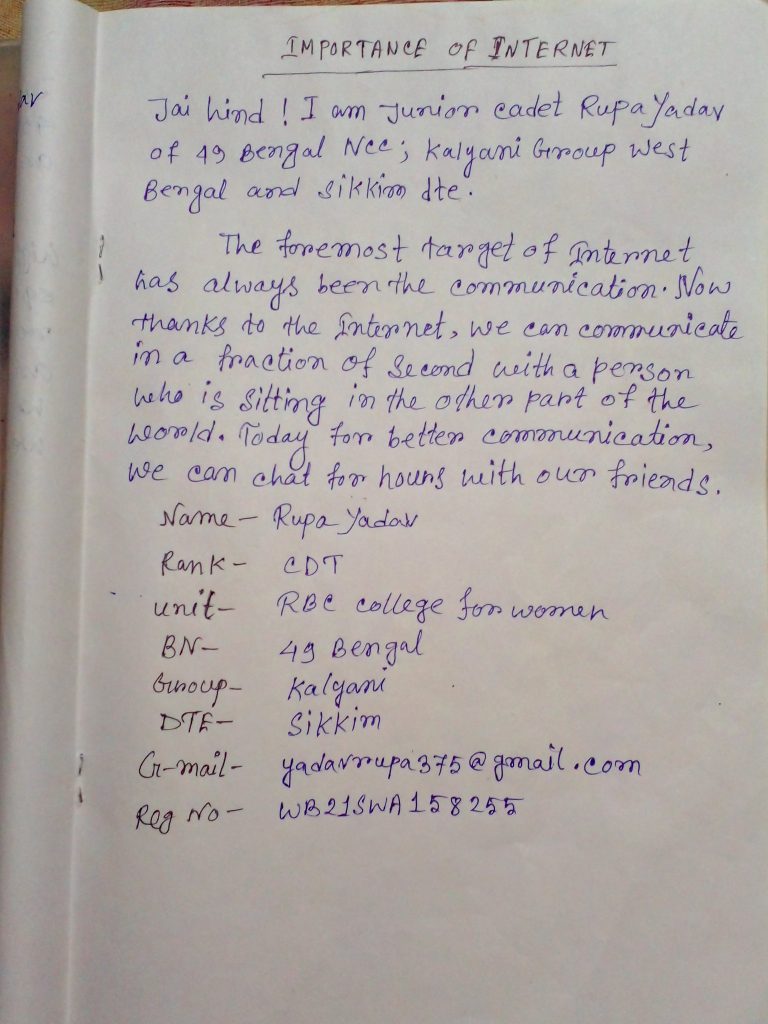 IMPORTANCE OF INTERNET
Jai hind ! I am Junior cadet Rupa Yadav
of 49 Bengal Ncc; Kalyani Group West
Bengal and Sikkim dte.
The foremost target of Internet
has always been the communication. Now
thanks to the Internet, we can communicate
in a fraction of second with a person
who is sitting in the other part of the
world. Today for better communication,
we can chat for hours with our friends.
Name - Rupa Yadav
Rank - CDT
unit - RBC college for women
BN - 49 Bengal
Group - Kalyani
DTE - Sikkim
G-mail - yadavrupa375@gmail.com
Reg No - WB21SWA158255